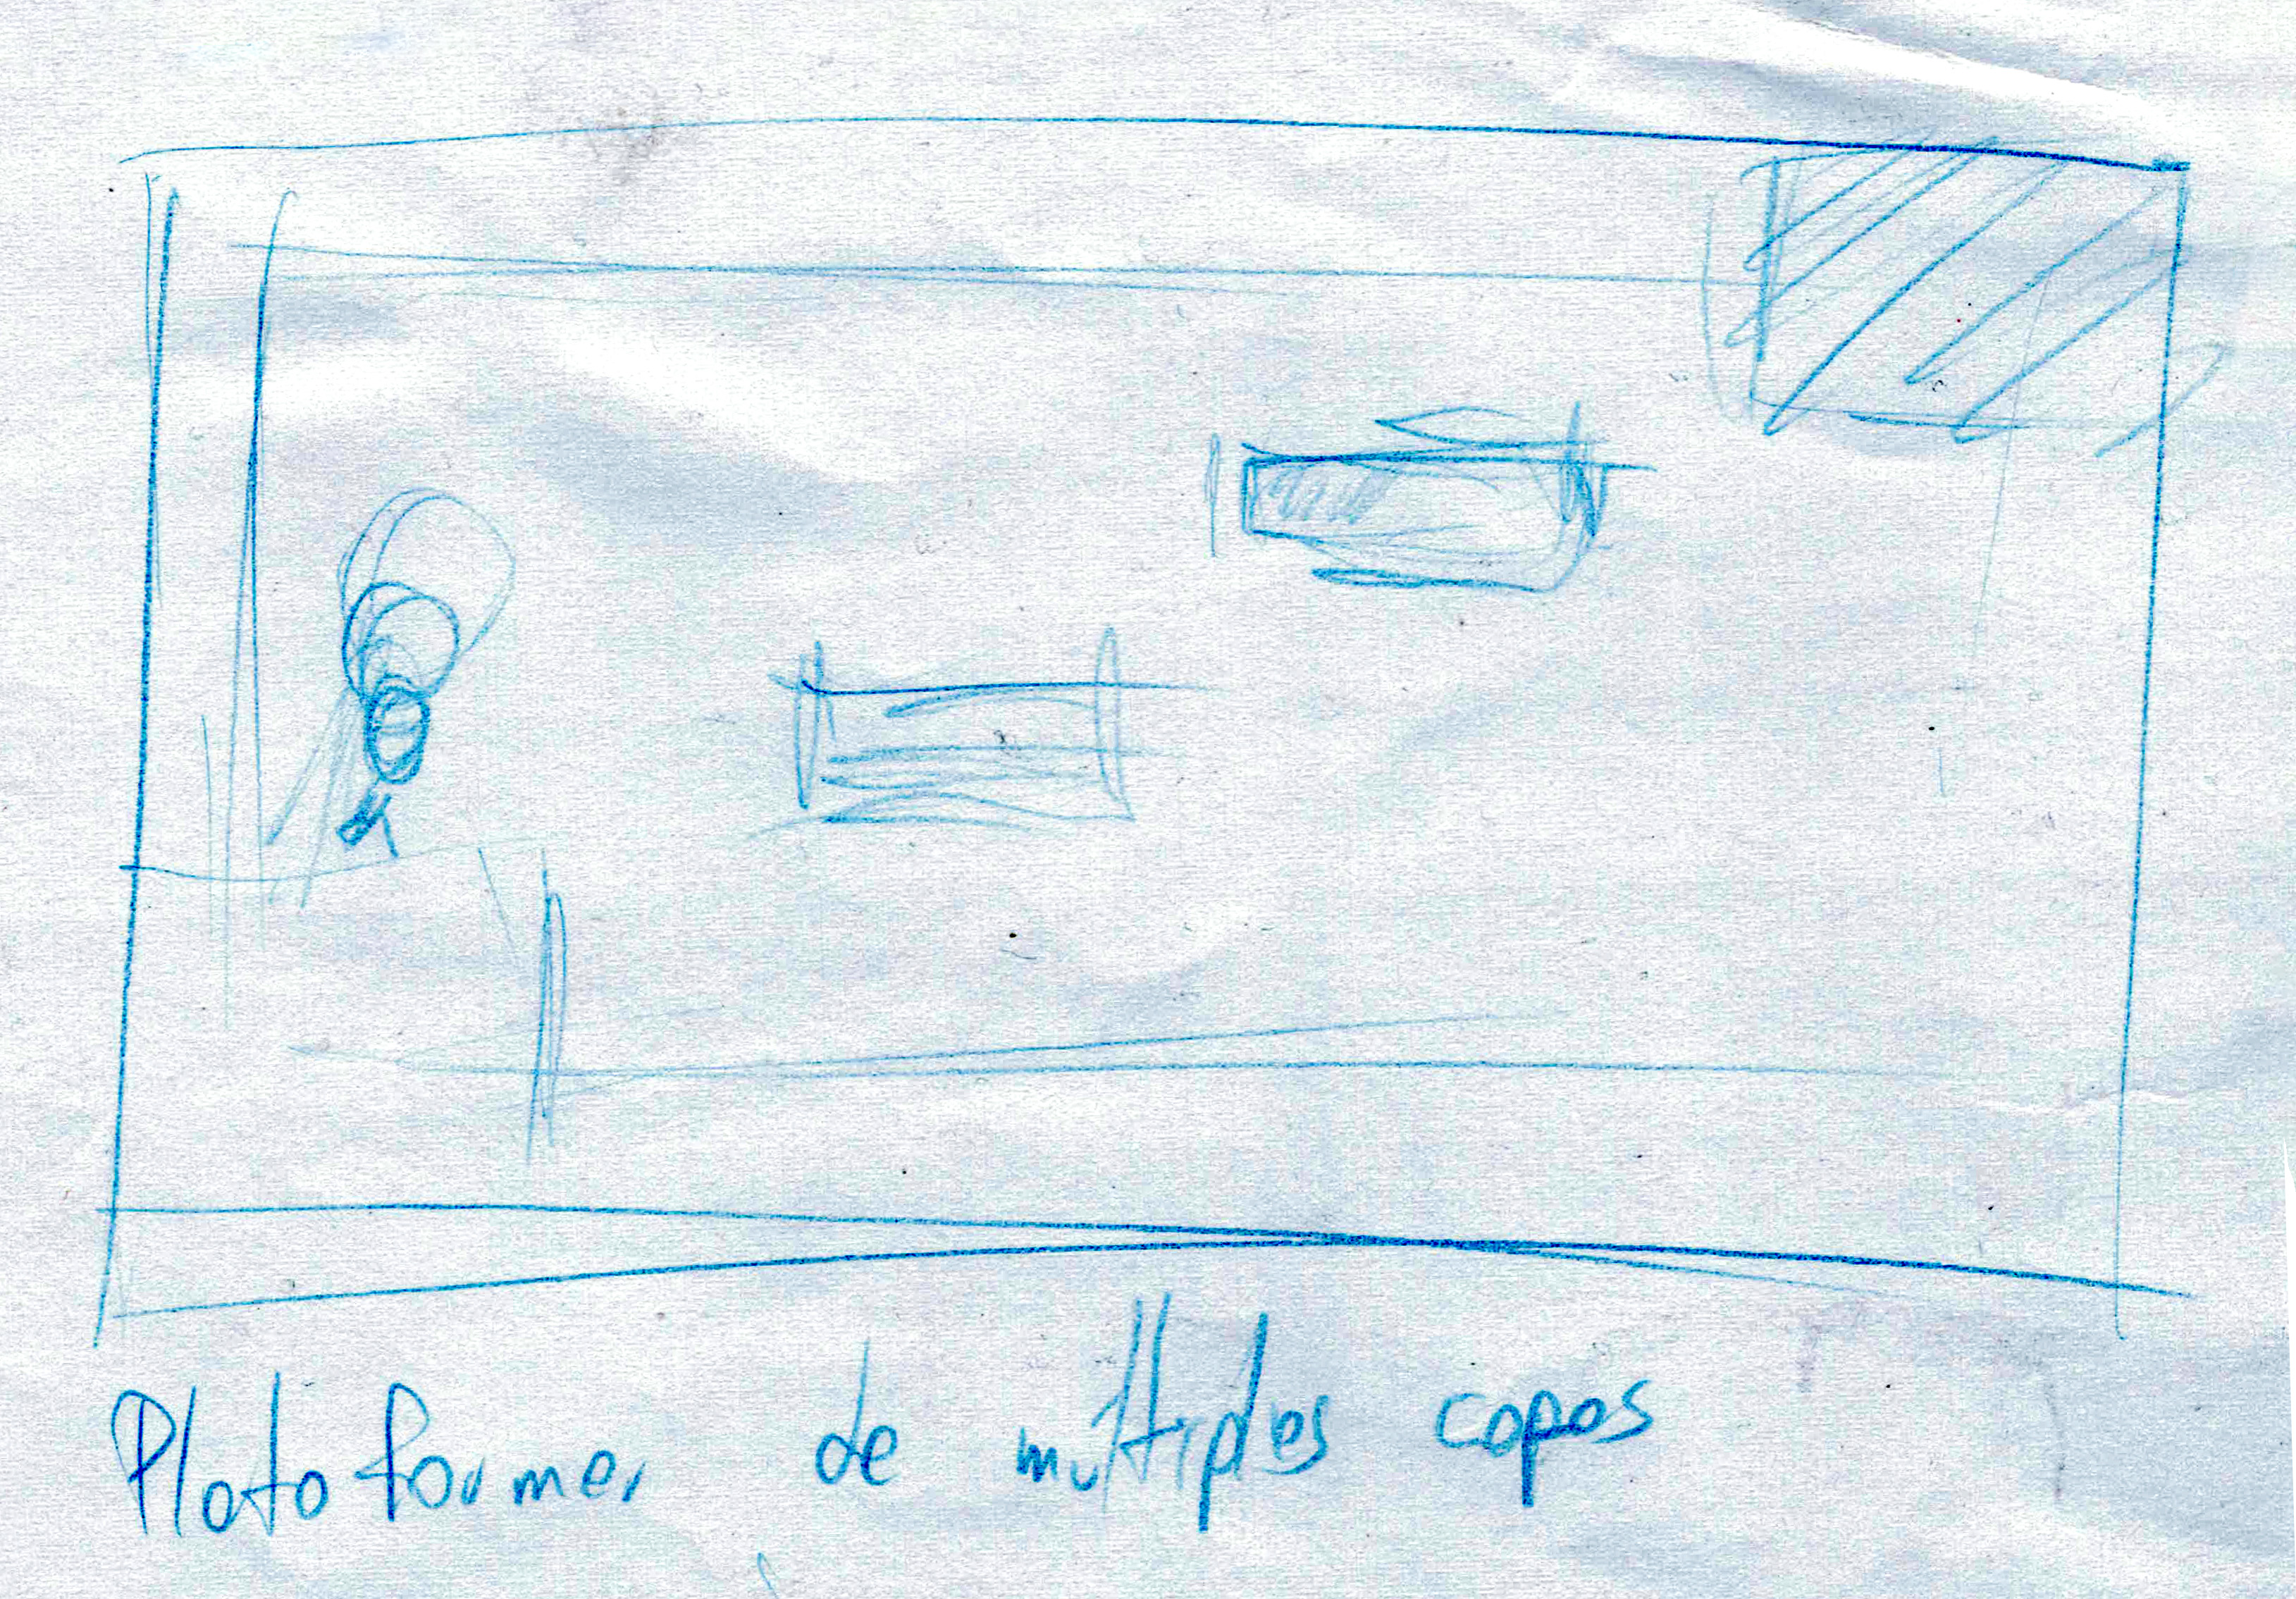 Plataformer de multiples capas